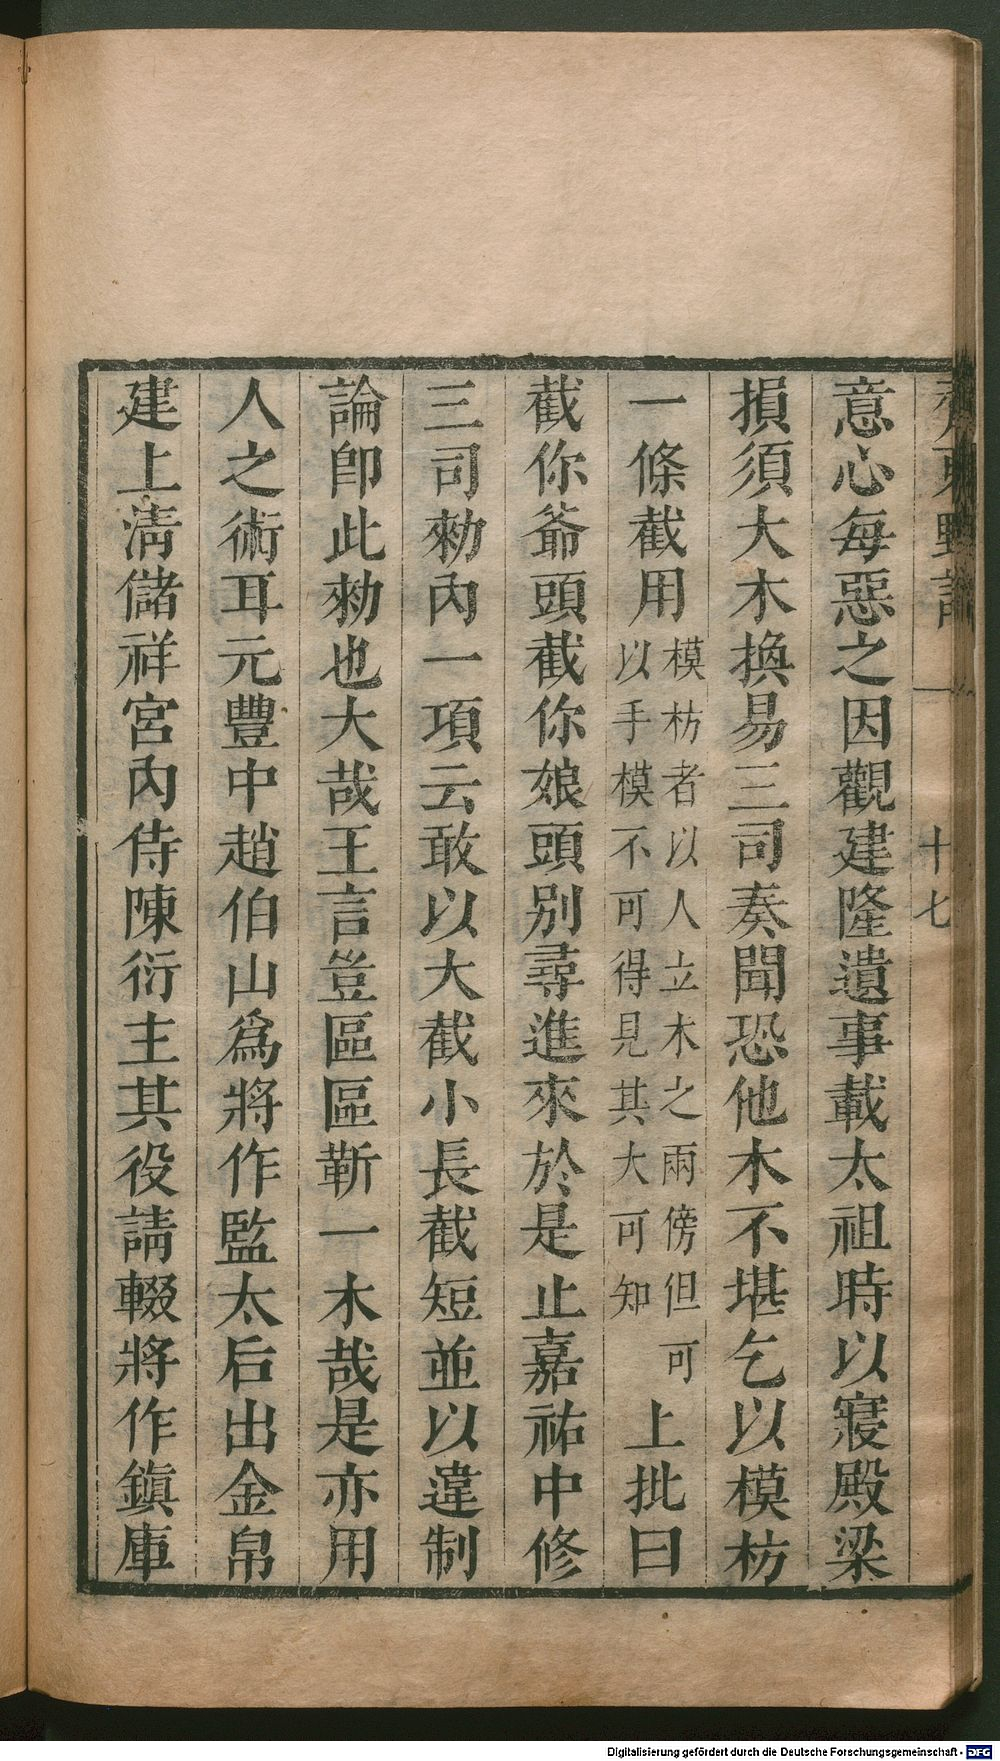 齊東野語
一
十七
意心每惡之因觀建隆遺事載太祖時以寢殿梁
損須大木換易三司奏聞恐他木不堪乞以模枋
一條截用模枋者以人立木之兩傍但可以手模不可得見其大可知上批曰
截你爺頭截你娘頭別尋進來於是止嘉祐中修
三司勑內一項云敢以大截小長截短並以違制
論卽此勑也大哉王言豈區區靳一木哉是亦用
人之術耳元豐中趙伯山爲將作監太后出金帛
建上淸儲祥宮內侍陳衍主其役請輟將作鎭庫
Digitalisierung gefördert durch die Deutsche Forschungsgemeinschaft - DFG